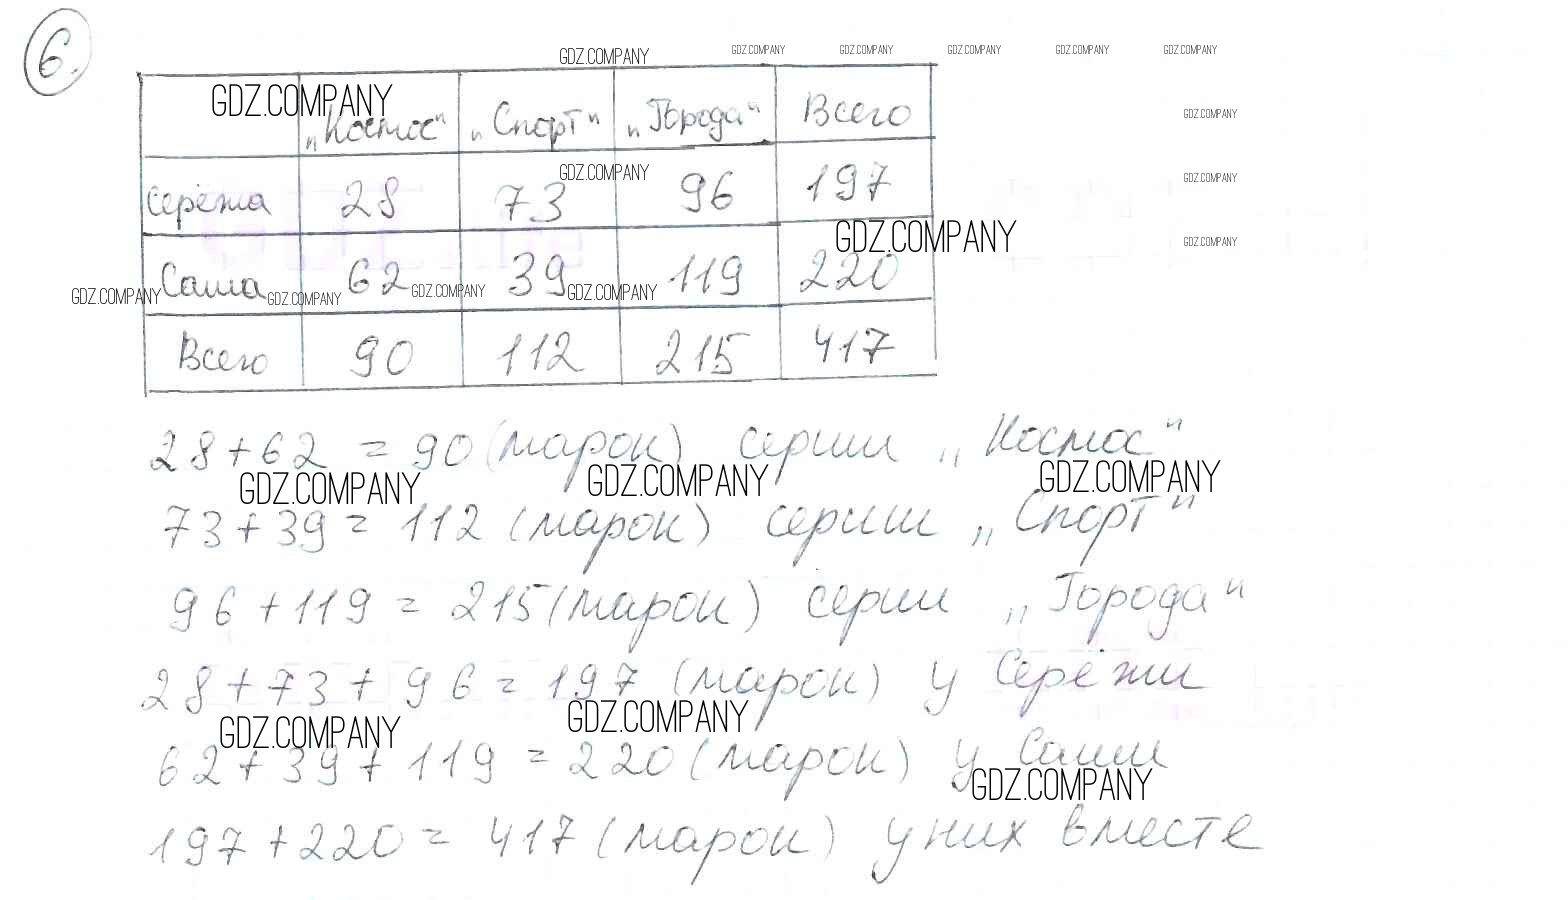 6.
GDZ.COMPANY GDZ.COMPANY GDZ.COMPANY GDZ.COMPANY GDZ.COMPANY GDZ.COMPANY
GDZ.COMPANY GDZ.COMPANY
„Космос“ „Спорт“ „Города“ Всего
GDZ.COMPANY GDZ.COMPANY
Серёжа 28 73 96 197
GDZ.COMPANY GDZ.COMPANY
Саша 62 39 119 220
GDZ.COMPANY GDZ.COMPANY GDZ.COMPANY GDZ.COMPANY
Всего 90 112 215 417
28+62 = 90 (марок) серии „Космос“
GDZ.COMPANY GDZ.COMPANY GDZ.COMPANY
73+39 = 112 (марок) серии „Спорт“
96+119 = 215 (марок) серии „Города“
28+73+96 = 197 (марок) у Серёжи
GDZ.COMPANY GDZ.COMPANY
62+39+119 = 220 (марок) у Саши
GDZ.COMPANY
197+220 = 417 (марок) у них вместе